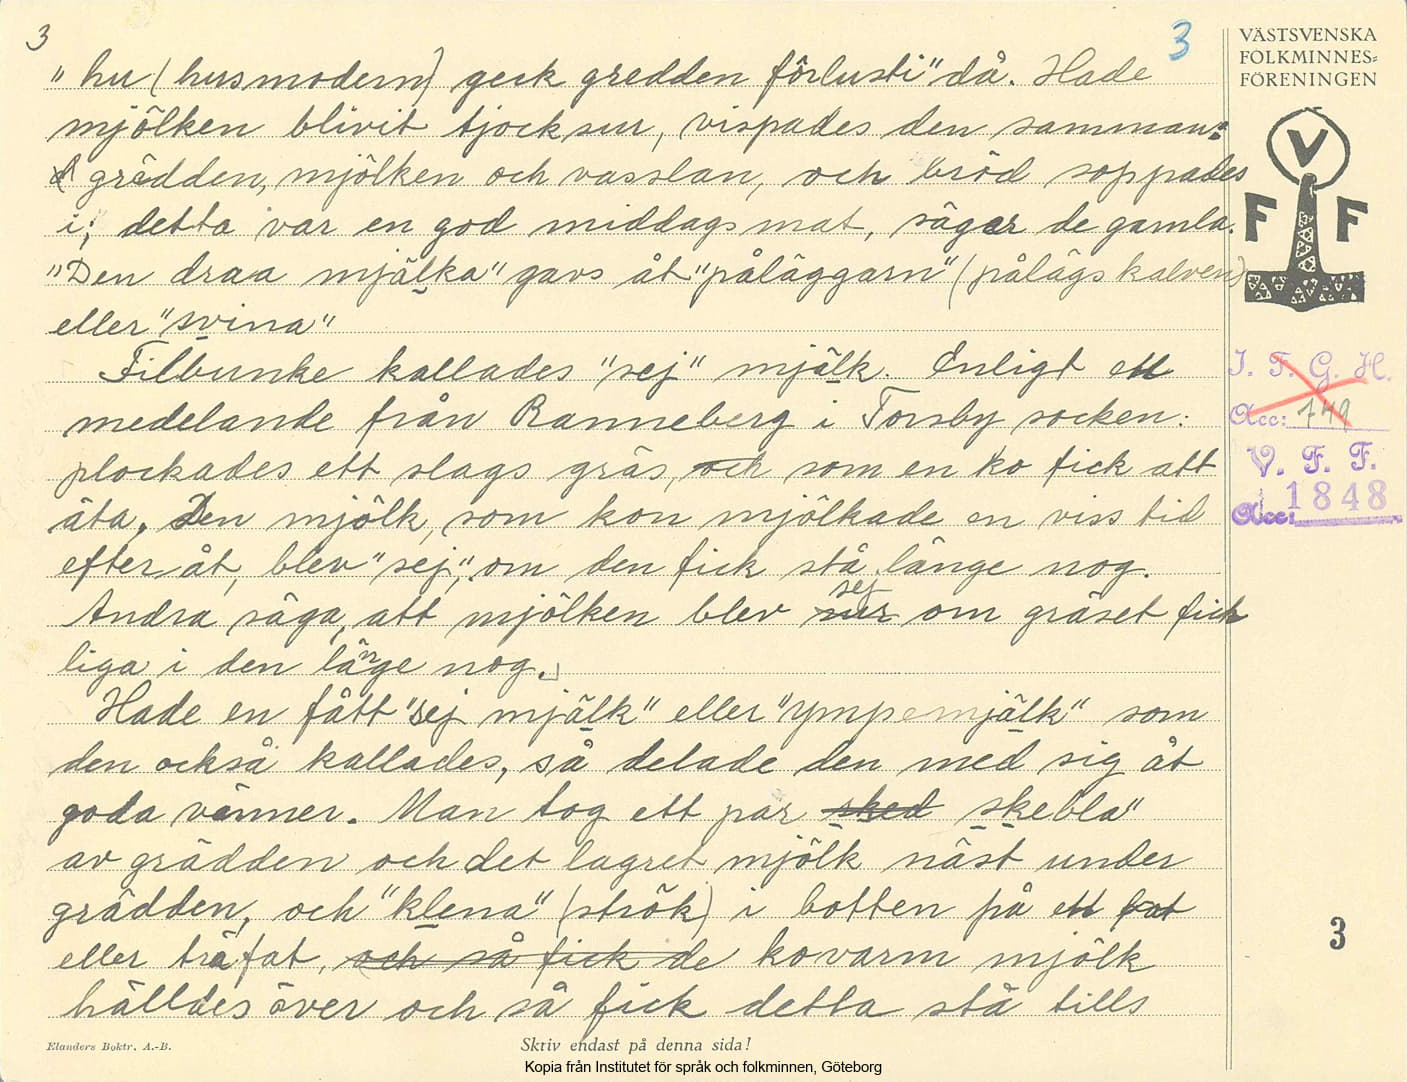 3
3
"hu (husmodern) geck gredden förlusti" då. Hade
mjölken blivit tjock sur, vispades den samman:
grädden, mjölken och vasslan, och bröd soppades
i; detta var en god middagsmat, säger de gamla.
"Den draa mjälka" gavs åt "påläggarn" (pålägskalven)
eller "svina"
Filbunke kallades "sej" mjälk. Enligt ett
medelande från Ranneberg i Torsby socken:
plockades ett slags gräs, och som en ko fick att
äta. Den mjölk, som kon mjölkade en viss tid
efter åt, blev "sej", om den fick stå länge nog.
sej
Andra säga, att mjölken blev sur om gräset fick
liga i den länge nog.
Hade en fått "sej mjälk" eller "ympemjälk" som
den också kallades, så delade den med sig åt
goda vänner. Man tog ett par sked skebla"
av grädden och det lagret mjölk näst under
grädden, och "klena" (strök) i botten på ett fat
eller träfat, och så fick de kovarm mjölk
hälldes över och så fick detta stå tills
VÄSTSVENSKA
FOLKMINNES=
FÖRENINGEN
V
F F
I. F. G. H.
Acc: 149
V. F. F.
Acc: 1848
3
Elanders Boktr. A.-B.
Skriv endast på denna sida!
Kopia från Institutet för språk och folkminnen, Göteborg